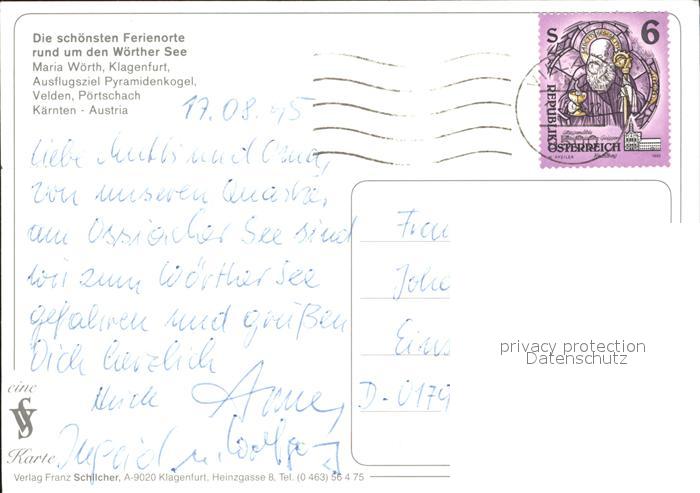 Die schönsten Ferienorte
rund um den Wörther See
Maria Wörth, Klagenfurt,
Ausflugsziel Pyramidenkogel,
Velden, Pörtschach
Kärnten - Austria
S 6
REPUBLIK
ÖSTERREICH
17.08.95
Liebe Mutti und Oma,
von unserem Quartier
am Ossiacher See sind
wir zum Wörther See
gefahren und grüßen
Dich herzlich
Anne,
Ingrid u. Wolfgang
Frau
D-0179
privacy protection
Datenschutz
eine
Karte
Verlag Franz Schilcher, A-9020 Klagenfurt, Heinzgasse 8, Tel. (0 463) 56 4 75